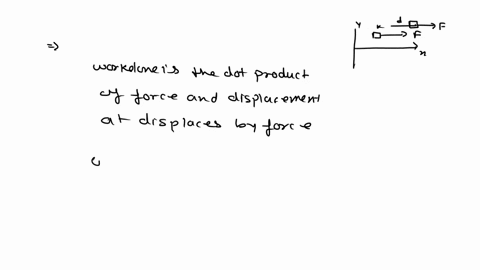 ⇒
workdone is the dot product
of force and displacement
at displaces by force
Y
d
F
F
x